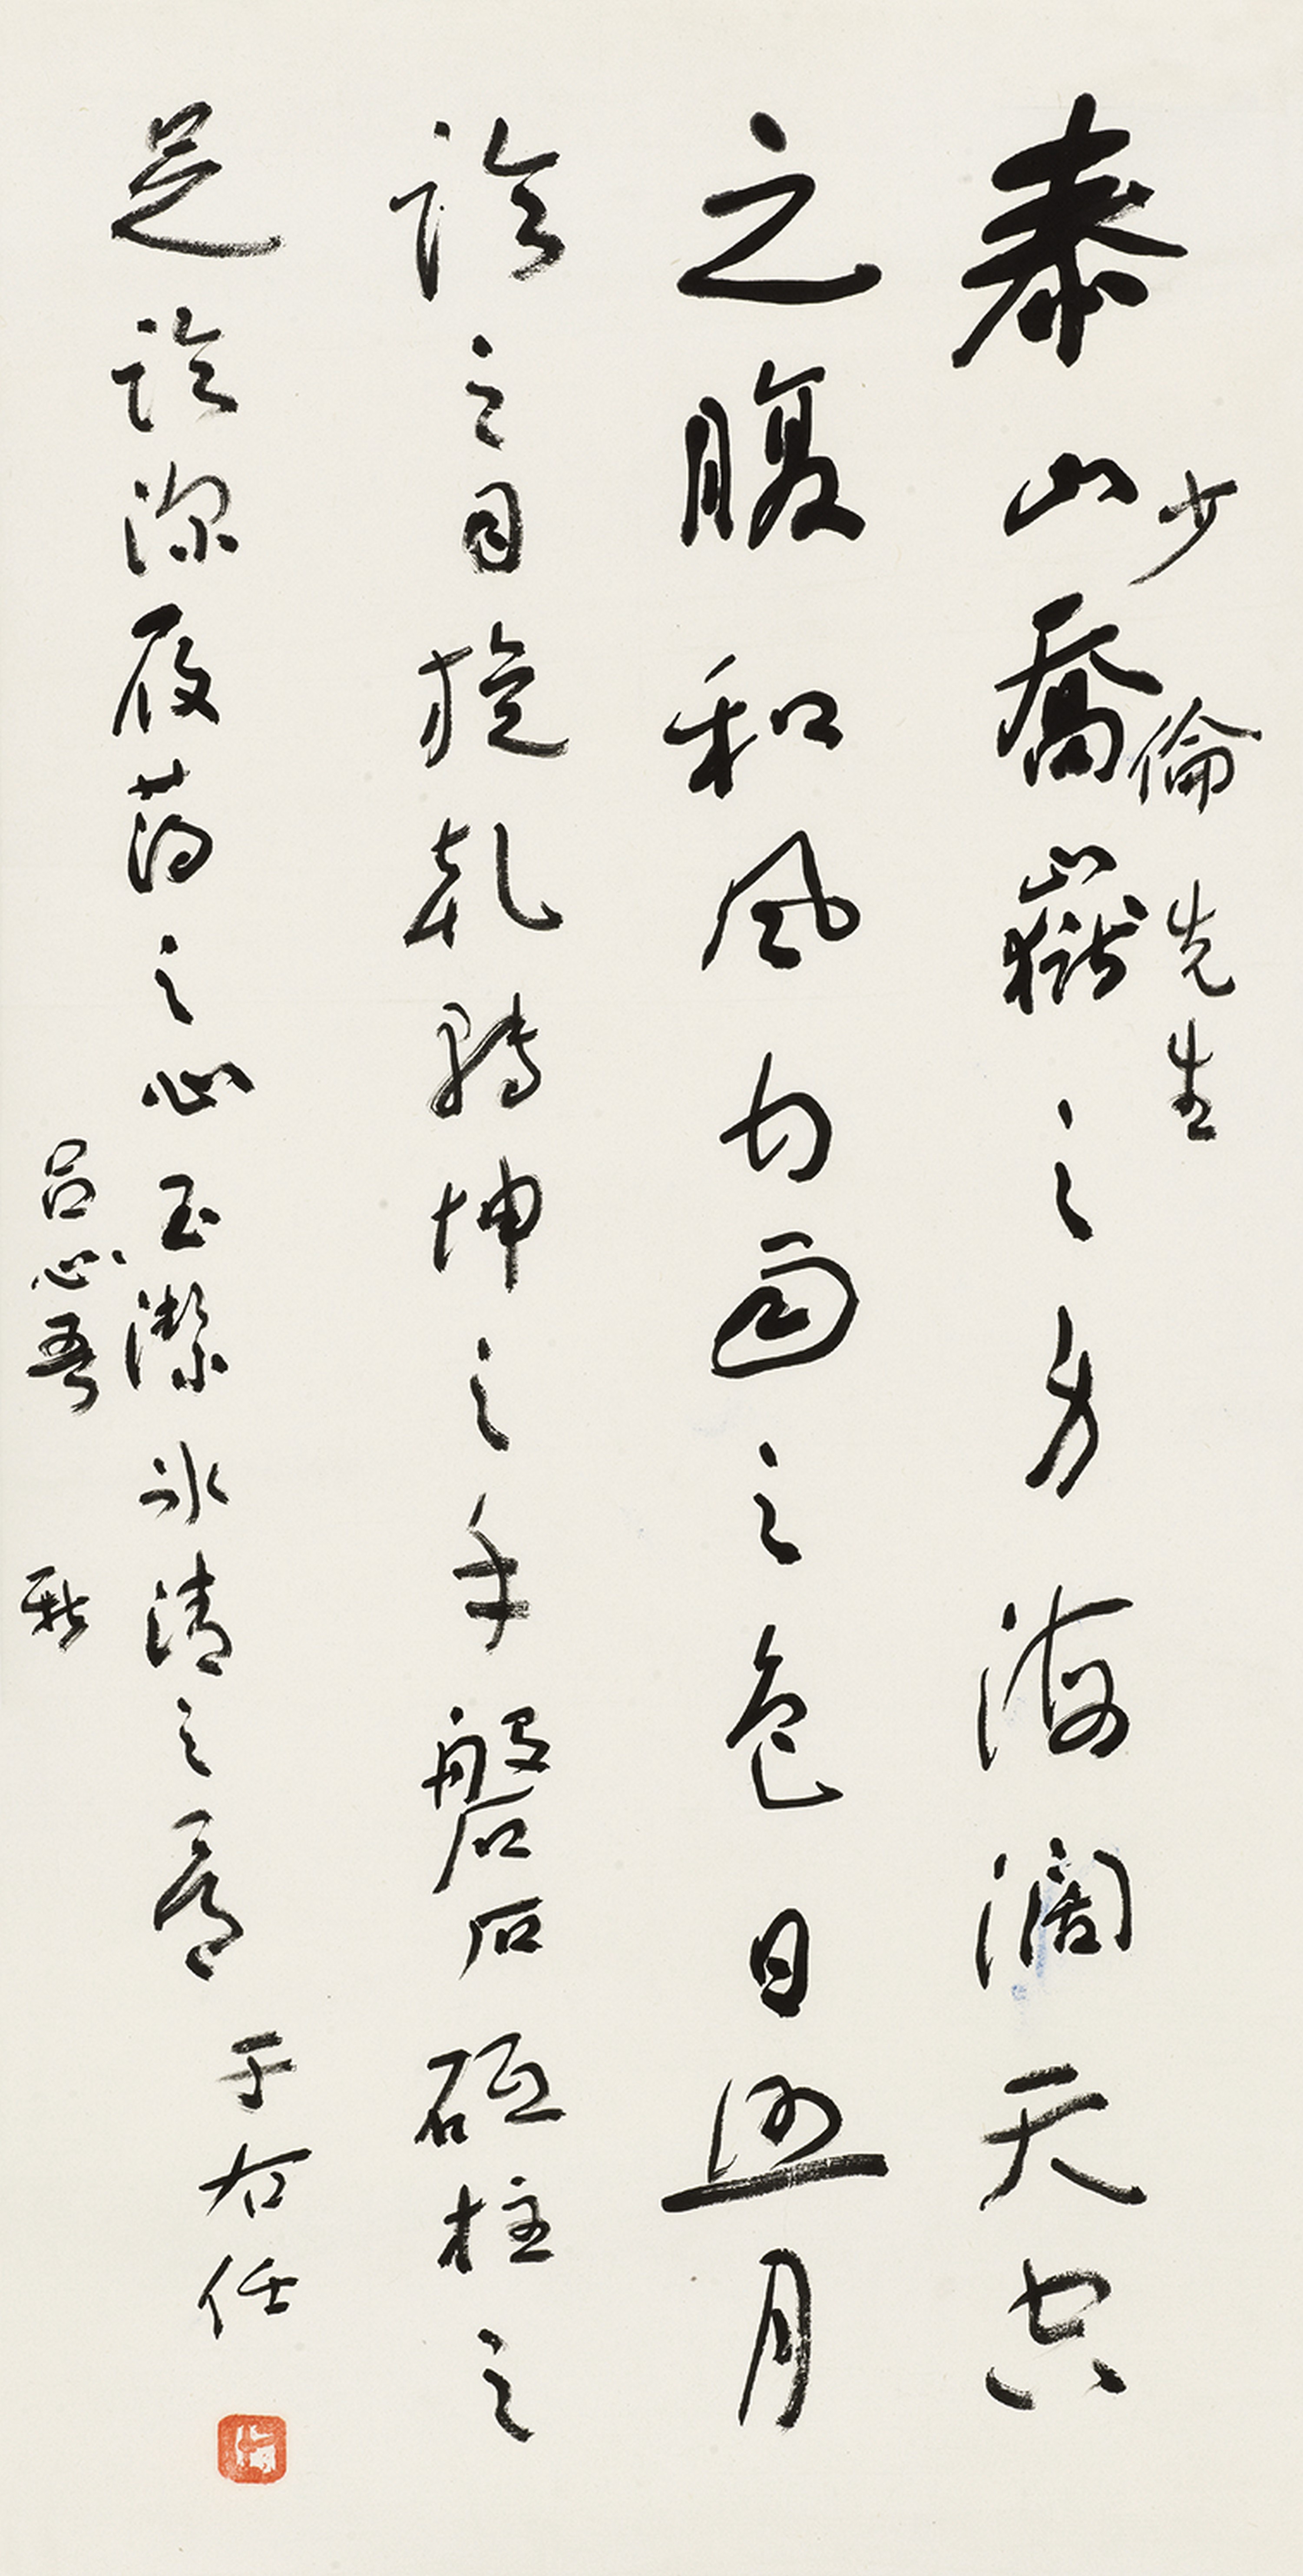 少倫先生
泰山喬嶽之身海闊天空
之腹和風甘雨之色日照月
臨之目旋乾轉坤之手磐石砥柱之
足臨深履薄之心玉潔冰清之骨
于右任
呂心吾